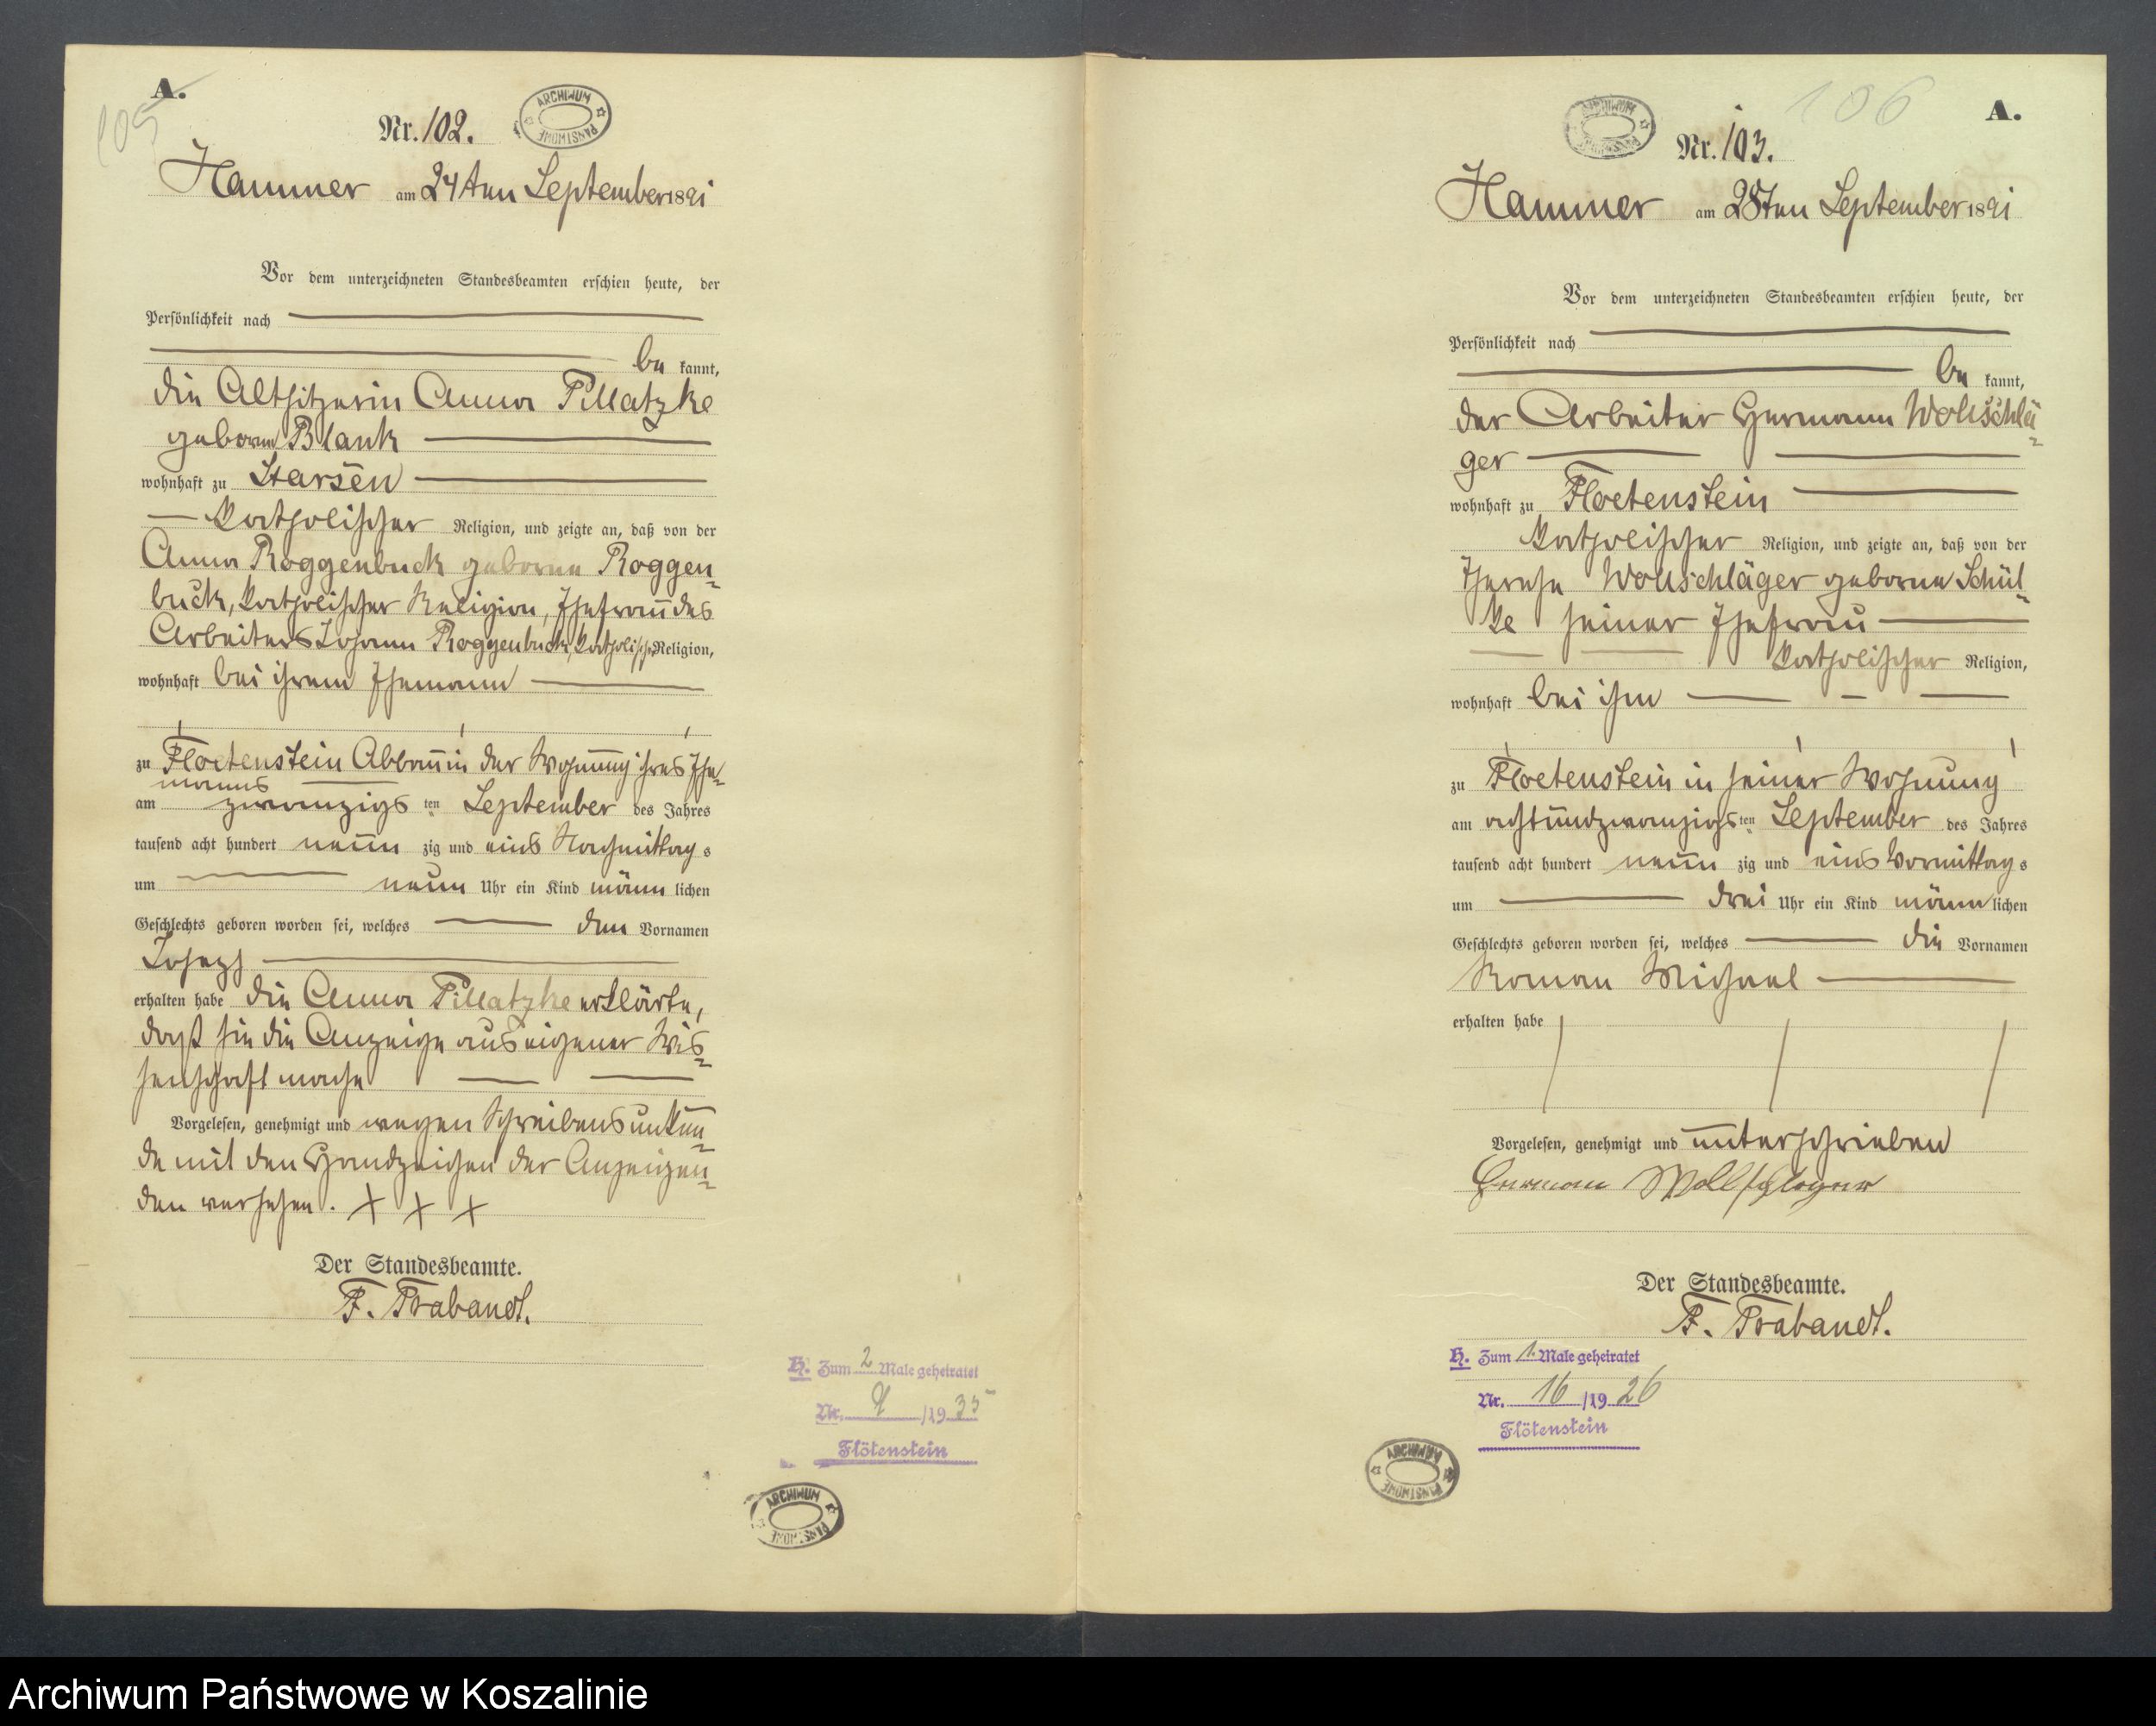 A.
105
Nr. 102.
ARCHIWUM PAŃSTWOWE
Hammer am 24ten September 1891
Vor dem unterzeichneten Standesbeamten erschien heute, der
Persönlichkeit nach
be kannt,
die Altsitzerin Anna Pillatzke
geborne Blank
wohnhaft zu Starsen
katholischer Religion, und zeigte an, daß von der
Anna Roggenbuck geborne Roggen-
buck, katholischer Religion, Ehefrau des
Arbeiters Johann Roggenbuck, katholischer Religion,
wohnhaft bei ihrem Ehemann
zu Floetenstein Abbau in der Wohnung ihres Ehe-
manns
am zwanzigsten September des Jahres
tausend acht hundert neun zig und eins Nachmittags
um neun Uhr ein Kind männlichen
Geschlechts geboren worden sei, welches den Vornamen
Joseph
erhalten habe die Anna Pillatzke erklärte,
daß sie die Anzeige aus eigener Wis-
senschaft mache
Vorgelesen, genehmigt und wegen Schreibensunkun-
de mit den Handzeichen der Anzeigen-
den versehen. X X X
Der Standesbeamte.
F. Trabandt.
H. Zum 2 Male geheiratet
Nr. 9 /19 35
Flötenstein
ARCHIWUM PAŃSTWOWE
106
A.
ARCHIWUM PAŃSTWOWE
Nr. 103.
Hammer am 28ten September 1891
Vor dem unterzeichneten Standesbeamten erschien heute, der
Persönlichkeit nach
be kannt,
der Arbeiter Hermann Wollschlä-
ger
wohnhaft zu Floetenstein
katholischer Religion, und zeigte an, daß von der
Therese Wollschläger geborne Schül-
ke seiner Ehefrau
katholischer Religion,
wohnhaft bei ihm
zu Floetenstein in seiner Wohnung
am achtundzwanzigsten September des Jahres
tausend acht hundert neun zig und eins Vormittags
um drei Uhr ein Kind männlichen
Geschlechts geboren worden sei, welches die Vornamen
Roman Michael
erhalten habe
Vorgelesen, genehmigt und unterschrieben
Herman Wollschlager
Der Standesbeamte.
F. Trabandt.
H. Zum 1. Male geheiratet
Nr. 16 /19 26
Flötenstein
ARCHIWUM PAŃSTWOWE
Archiwum Państwowe w Koszalinie